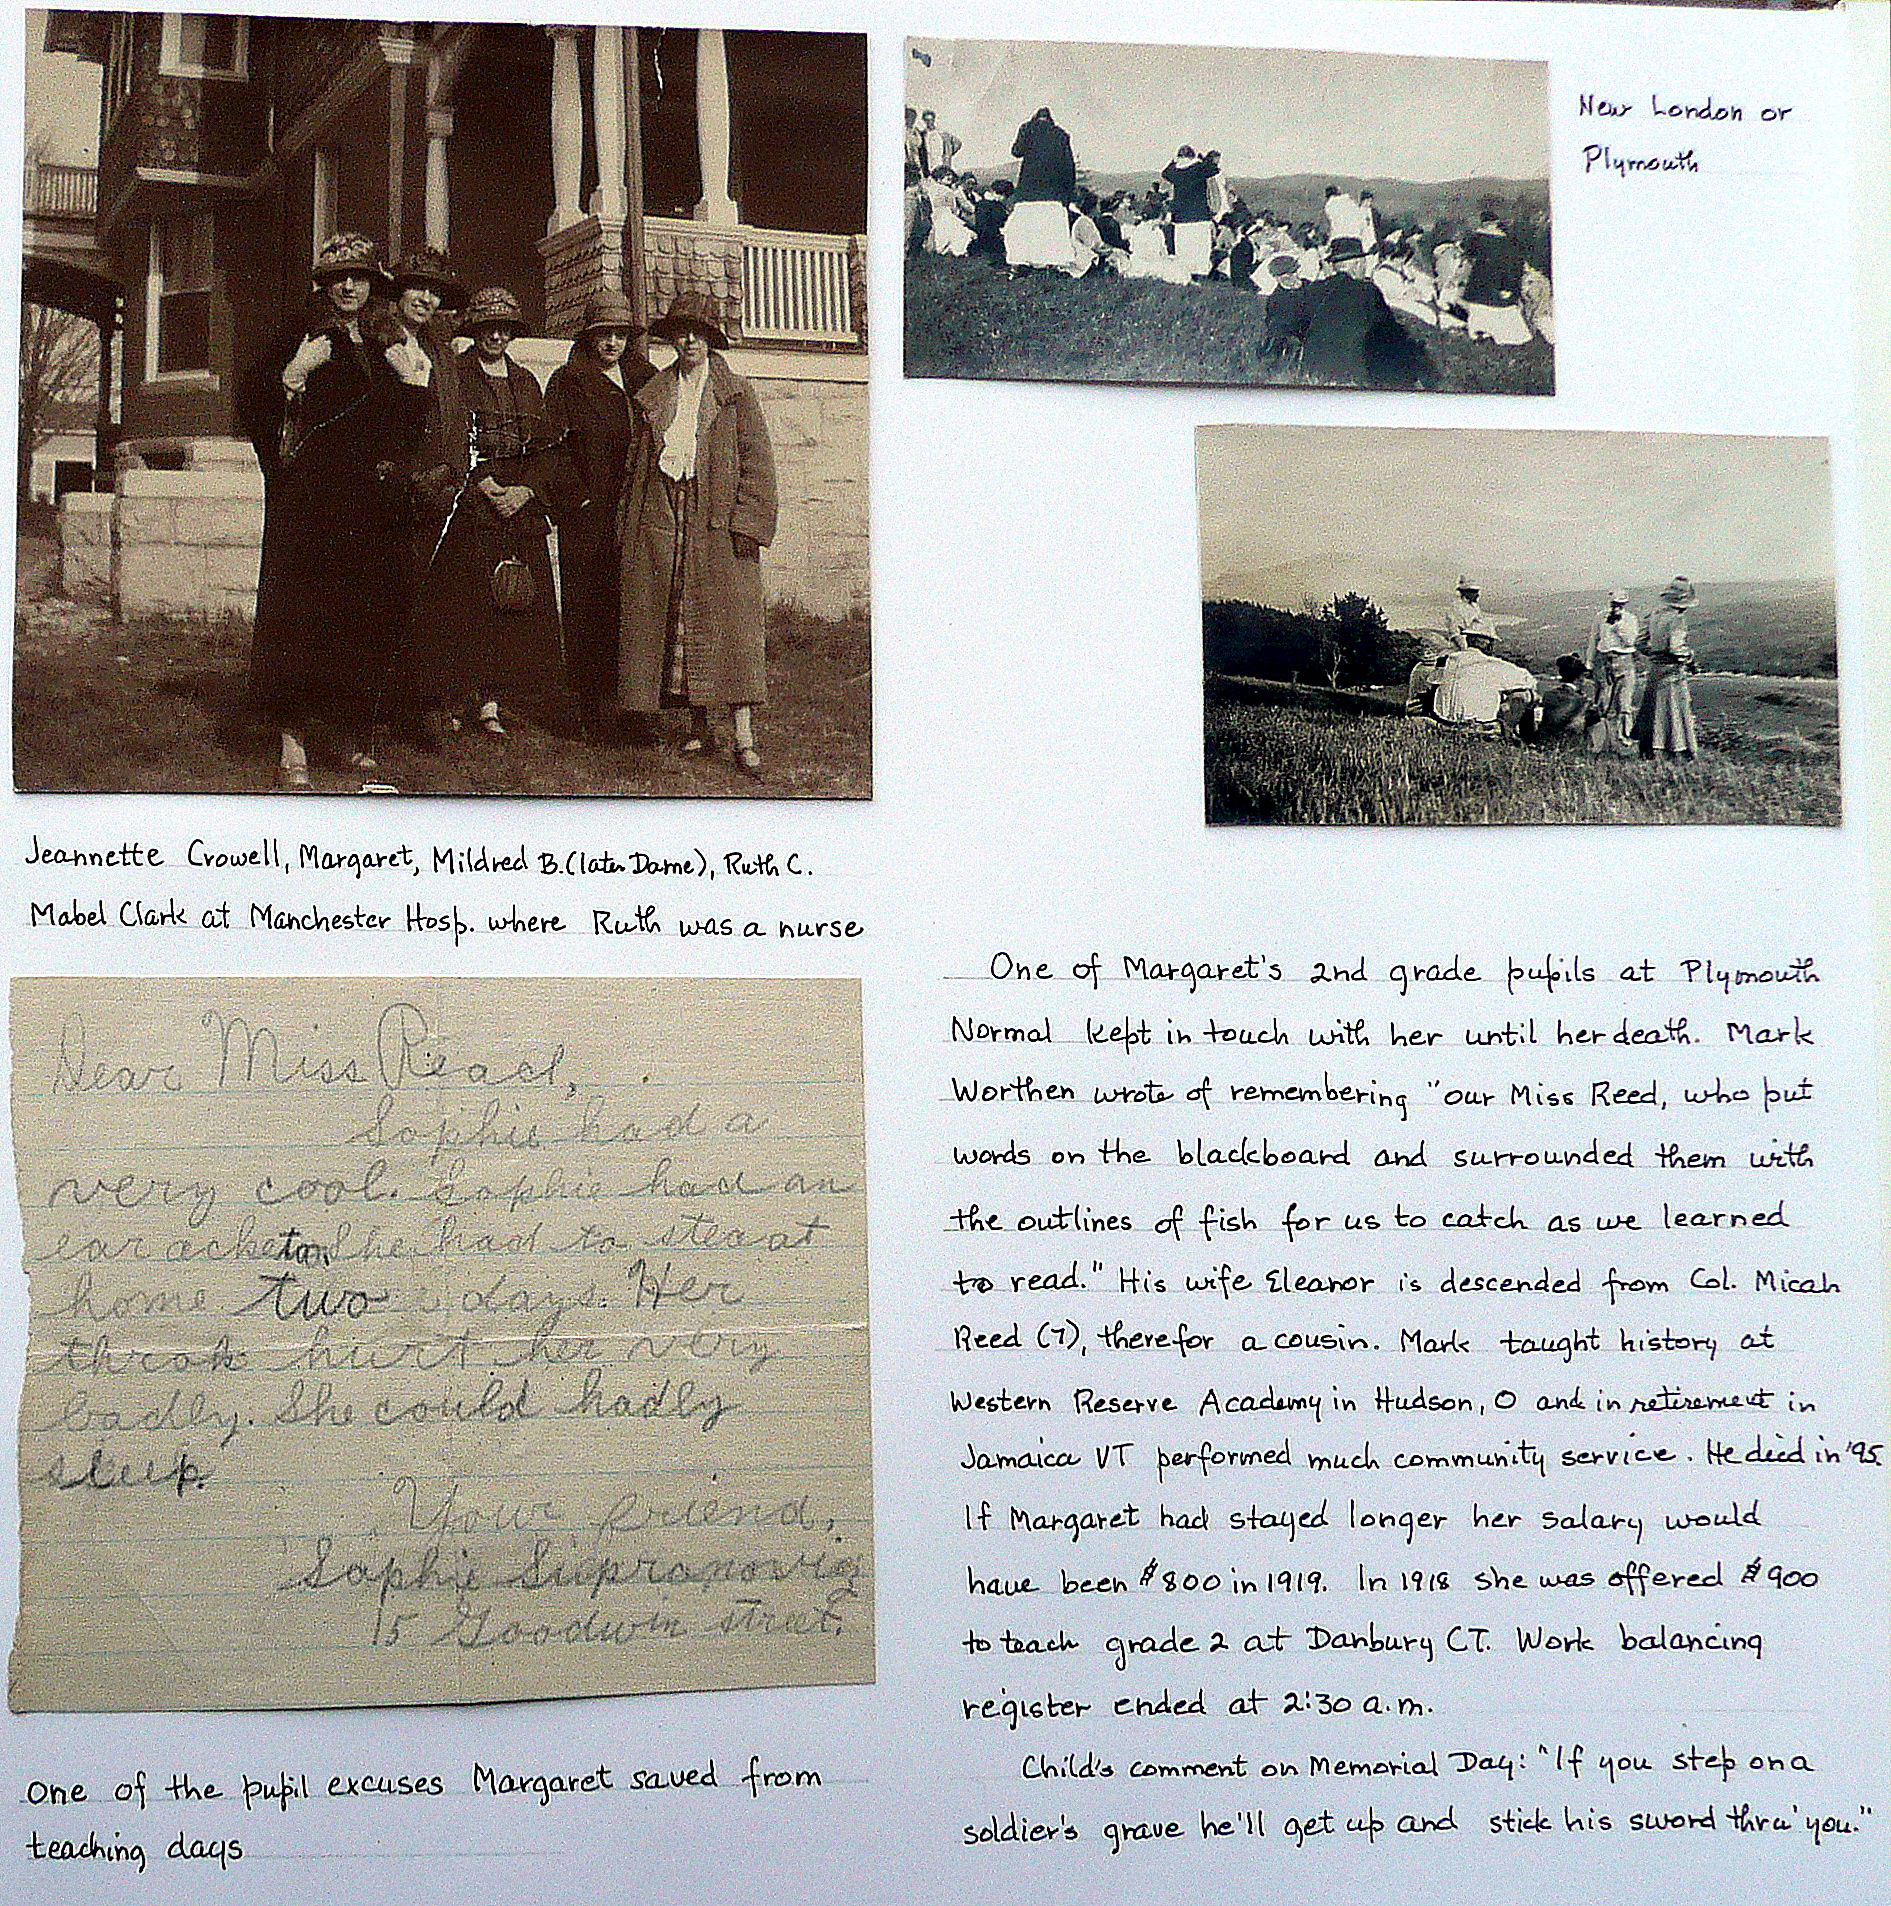 New London or
Plymouth
Jeannette Crowell, Margaret, Mildred B. (later Dame), Ruth C.
Mabel Clark at Manchester Hosp. where Ruth was a nurse
Dear Miss Reacl,
Sophie had a
very cool. Sophie had an
ear ache to. She had to stea at
home two days. Her
throk hurt her very
badly. She could hadly
sleep.
Your friend,
Sophie Supranovig
15 Goodwin street.
One of the pupil excuses Margaret saved from
teaching days
One of Margaret's 2nd grade pupils at Plymouth
Normal kept in touch with her until her death. Mark
Worthen wrote of remembering "our Miss Reed, who put
words on the blackboard and surrounded them with
the outlines of fish for us to catch as we learned
to read." His wife Eleanor is descended from Col. Micah
Reed (7), therefor a cousin. Mark taught history at
Western Reserve Academy in Hudson, O and in retirement in
Jamaica VT performed much community service. He died in '95.
If Margaret had stayed longer her salary would
have been $800 in 1919. In 1918 she was offered $900
to teach grade 2 at Danbury CT. Work balancing
register ended at 2:30 a.m.
Child's comment on Memorial Day: "If you step on a
soldier's grave he'll get up and stick his sword thru' you."